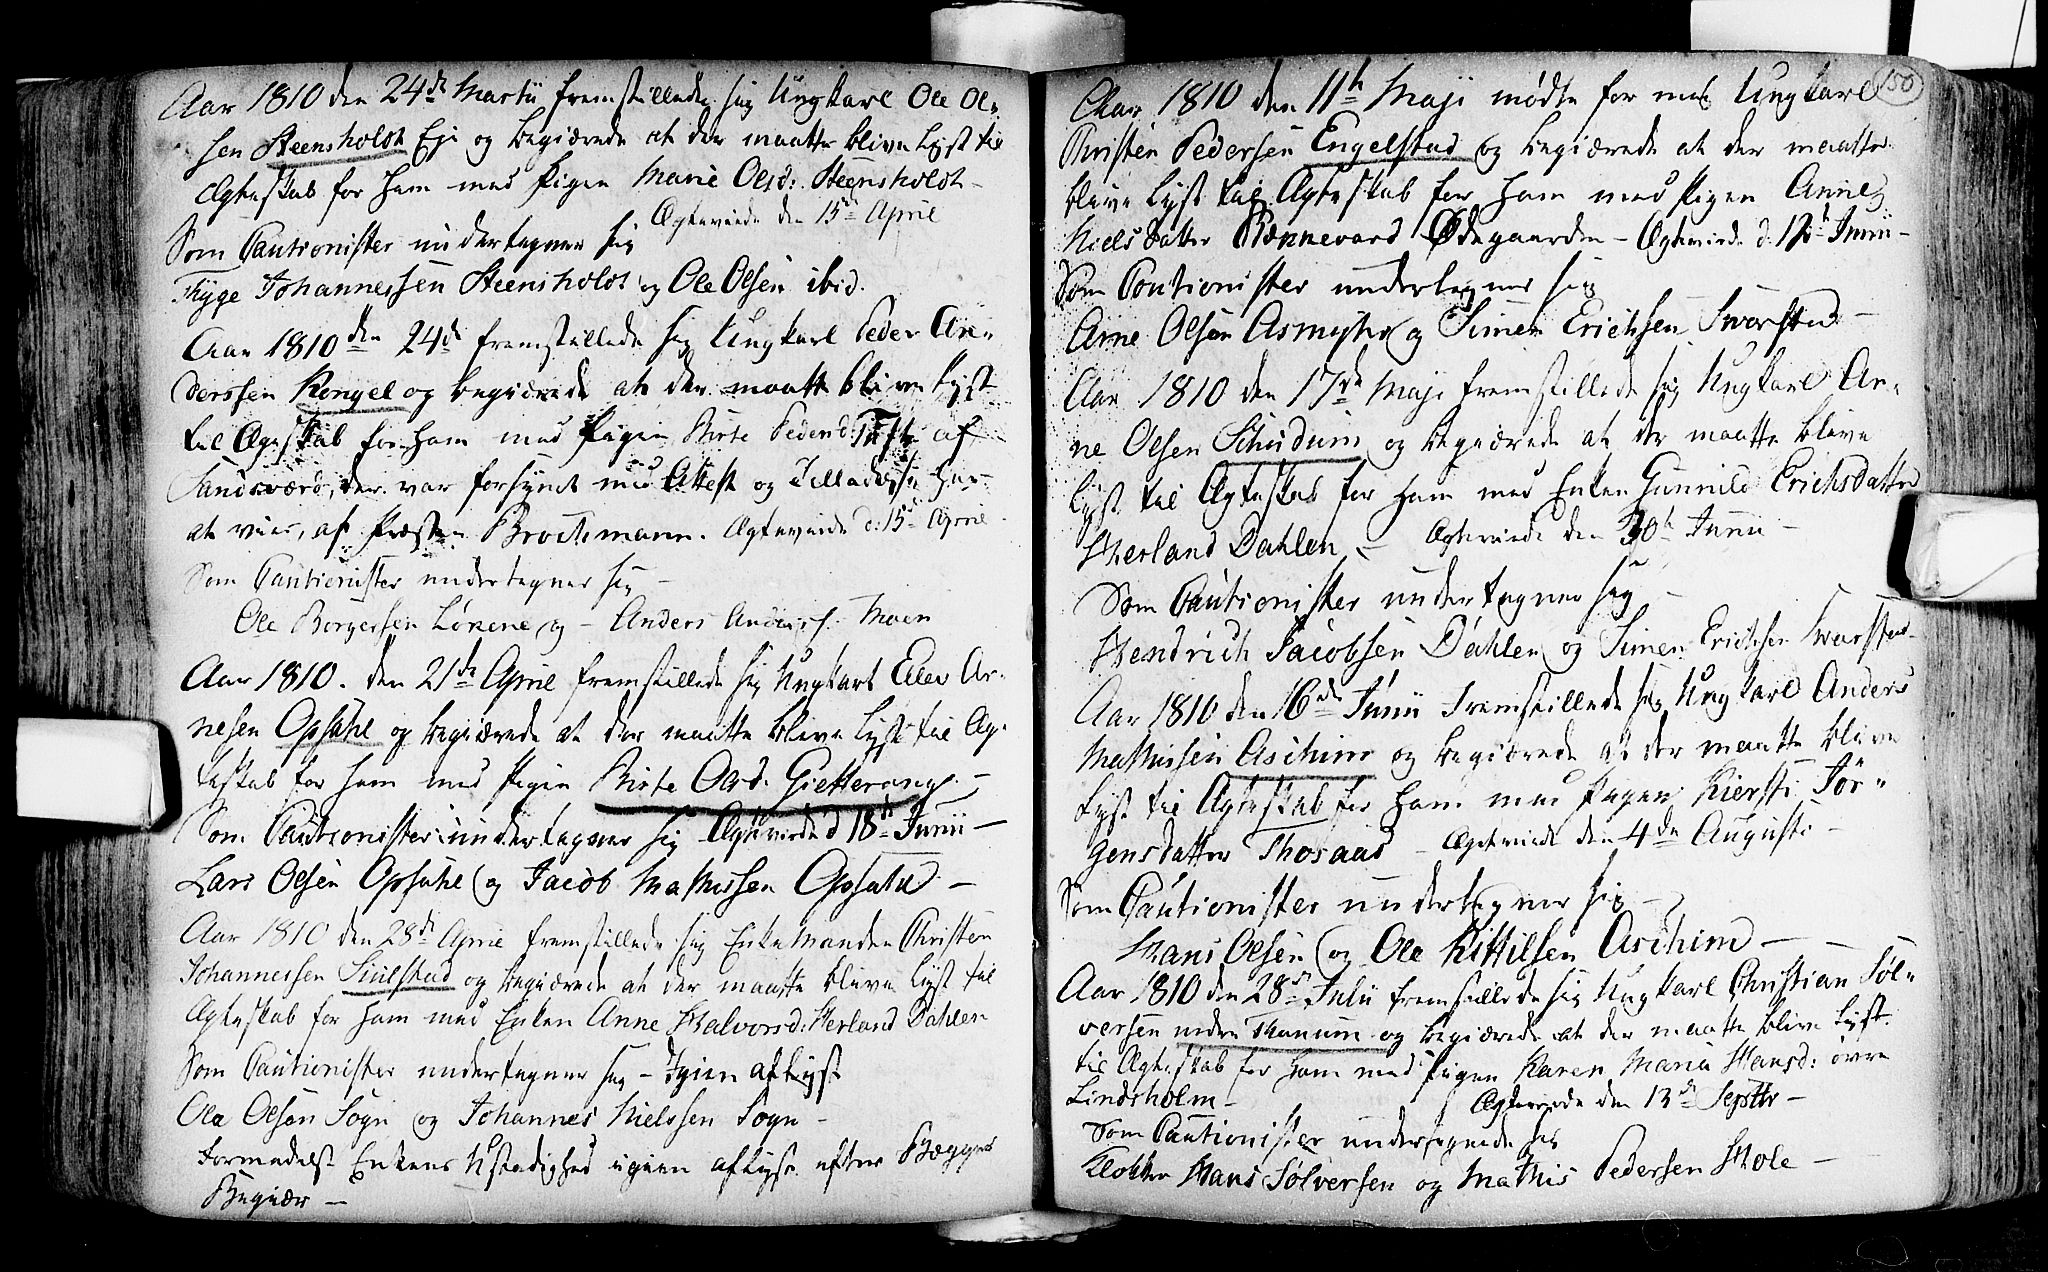 Aar 1810 den 24de Martii fremstillede sig Ungkarl Ole Ol-
sen Steensholdt Eje og begiærede at der maatte blive lyst til
Ægteskab for ham med Pigen Marie Olsd: Steensholdt -
Ægteviede den 15de April
Som Cautionister undertegner sig
Tryge Johannessen Steensholdt og Ole Olsen ibid.
Aar 1810 den 24de fremstillede sig Ungkarl Peder An-
derssen Kongel og begiærede at der maatte blive lyst
til Ægteskab for ham med Pigen Birte Pedersd: af
Sandsværd, der var forsynet med Attest og Tilladelse
at vies, af Præsten Brockmann. Ægteviede d: 15de April
Som Cautionister undertegner sig -
Ole Borgersen Løkene og - Anders Anders. Moen
Aar 1810. den 21de April fremstillede sig Ungkarl Elev Ar-
nesen Opsahl og begiærede at der maatte blive lyst til Æg-
teskab for ham med Pigen Birte Olsd. Gietterang. -
Som Cautionister undertegner sig Ægteviede d 18de Junii -
Lars Olsen Opsahl og Jacob Mathissen Opsahl -
Aar 1810 den 28de April fremstillede sig Enkemanden Christen
Johannessen Siulstad og begiærede at der maatte blive lyst til
Ægteskab for ham med Enken Anne Halvorsd: Herland Dahlen
Som Cautionister undertegner sig - Igien aflyst
Ole Olsen Sogn og Johannes Nielssen Sogn -
Formedelst Enkens Ustadighed igien aflyst efter Begges
Begiær -
150
Aar 1810 den 11te Maji mødte for mig Ungkarl
Christen Pedersen Engelstad og begiærede at der maatte
blive lyst til Ægteskab for ham med Pigen Anne
Niels Datter Rønnevard Ødegaarden - Ægteviede d: 12te Junii -
Som Cautionister undertegner sig
Arne Olsen Asmyhr og Simen Erichsen Svarstad -
Aar 1810 den 17de Maji fremstillede sig Ungkarl Ar-
ne Olsen Schudum og begiærede at der maatte blive
lyst til Ægteskab for ham med Enken Gunnild Erichsdatter
Herland Dahlen - Ægteviede den 30te Junii -
Som Cautionister undertegner sig -
Hendrich Jacobsen Dahlen og Simen Erichsen Svarstad
Aar 1810 den 16de Junii fremstillede sig Ungkarl Anders
Mathissen Aschim og begiærede at der maatte blive
lyst til Ægteskab for ham med Pigen Kiersti Jør-
gensdatter Thoraas - Ægteviede den 4de Augusti -
Som Cautionister undertegner sig -
Hans Olsen og Ole Kittilsen Aschim -
Aar 1810 den 28de Julii fremstillede sig Ungkarl Christian Søl-
versen nedre Thanum og begiærede at der maatte blive lyst
til Ægteskab for ham med Pigen Karen Maria Hansd: øvre
Lindsholm - Ægteviede den 13de Septbr -
Som Cautionister undertegnede sig
Klokker Hans Sølversen og Mathis Pedersen Hole -